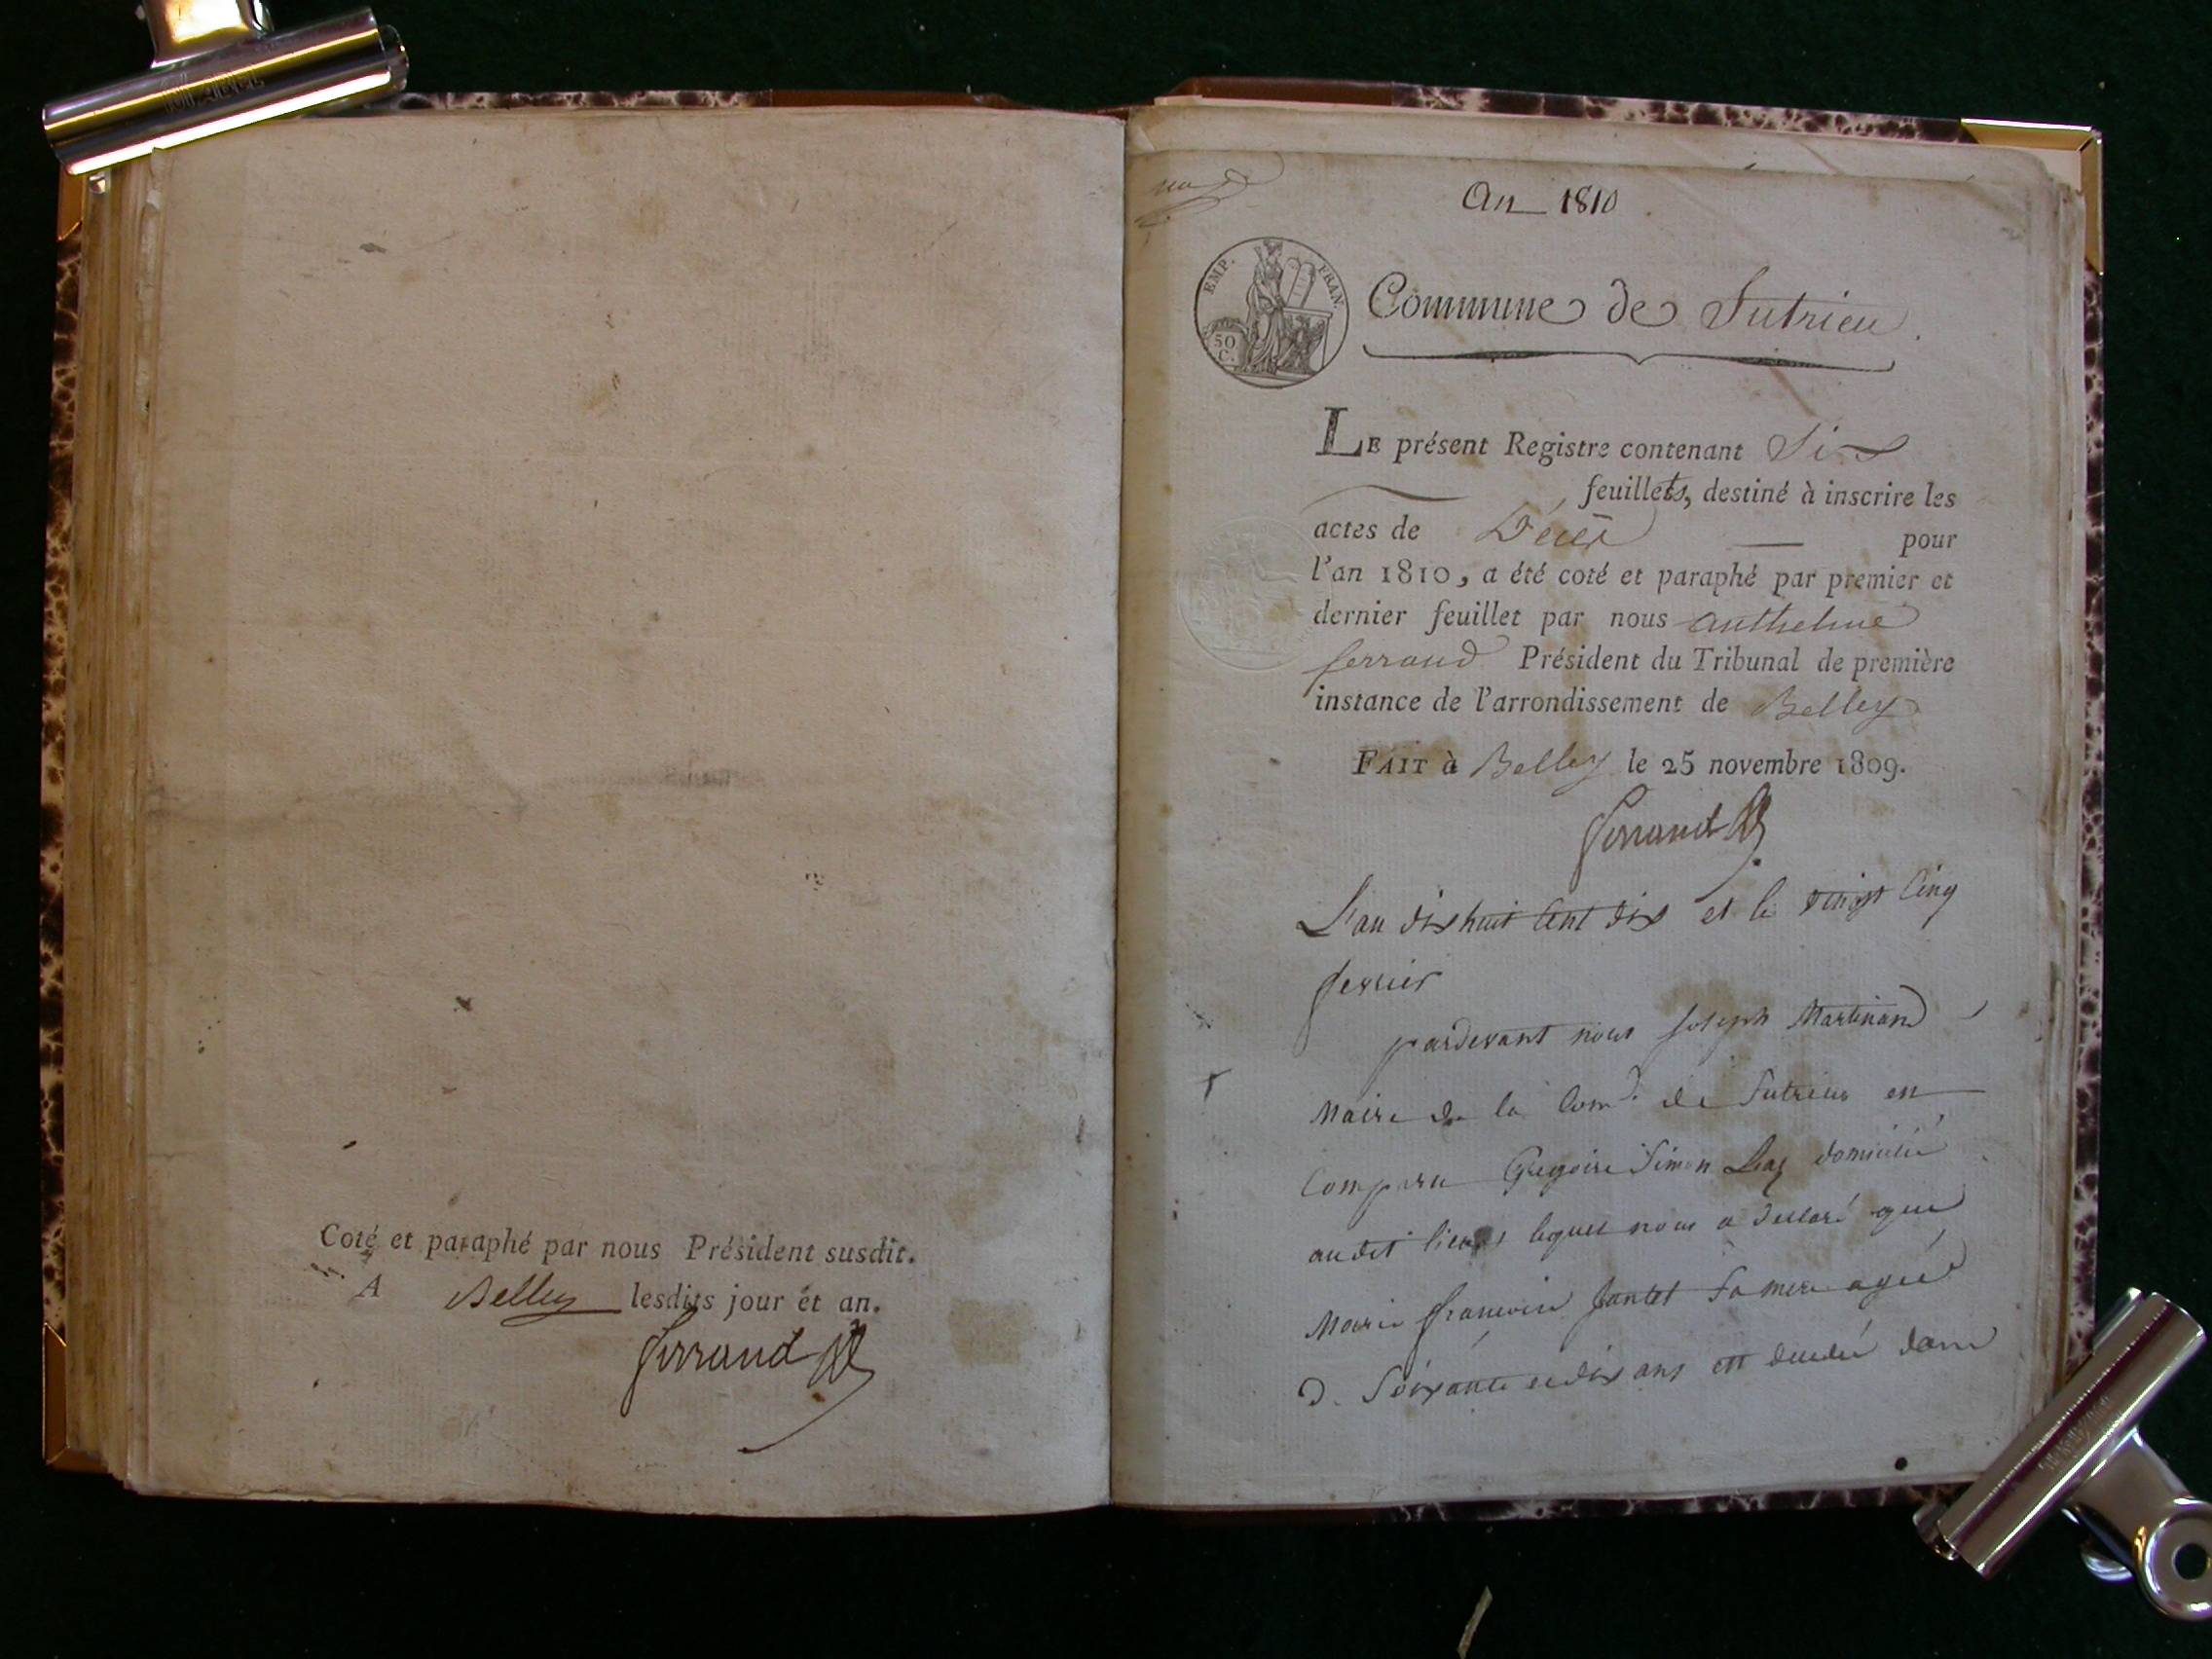 Coté et paraphé par nous Président susdit.
A Belley lesdits jour et an.
Ferrand
An 1810
EMP. FRAN.
50 C.
Commune de Sutrieu
LE présent Registre contenant Six
feuillets, destiné à inscrire les
actes de Décès pour
l'an 1810, a été coté et paraphé par premier et
dernier feuillet par nous anthelme
ferrand Président du Tribunal de première
instance de l'arrondissement de Belley
FAIT à Belley le 25 novembre 1809.
Ferrand
L'an dix huit Cent dix et le vingt Cinq
fevrier
pardevant nous joseph Martinand
Maire de la Com.e de Sutrieu en
Comparu Gregoire Simon domicilié
audit lieu lequel nous a declaré que
Marie françoise sa mere agée
d. Soixante et dix ans est decedée dans